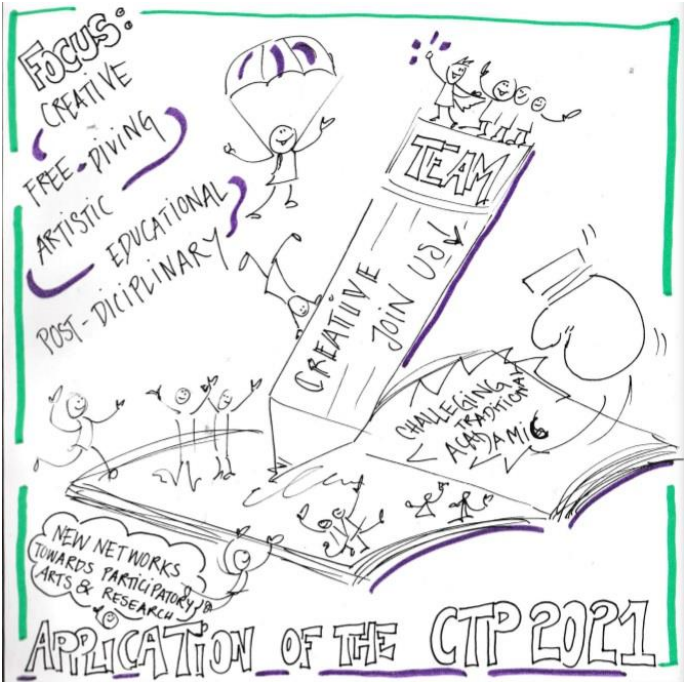 FOCUS:
CREATIVE
FREE-DIVING
ARTISTIC
EDUCATIONAL
POST-DICIPLINARY
TEAM
CREATIVE
JOIN US!
CHALLEGING
TRADITIONAL
ACADAMIC
NEW NETWORKS
TOWARDS PARTICIPATORY
ARTS & RESEARCH
APPLICATION OF THE CTP 2021